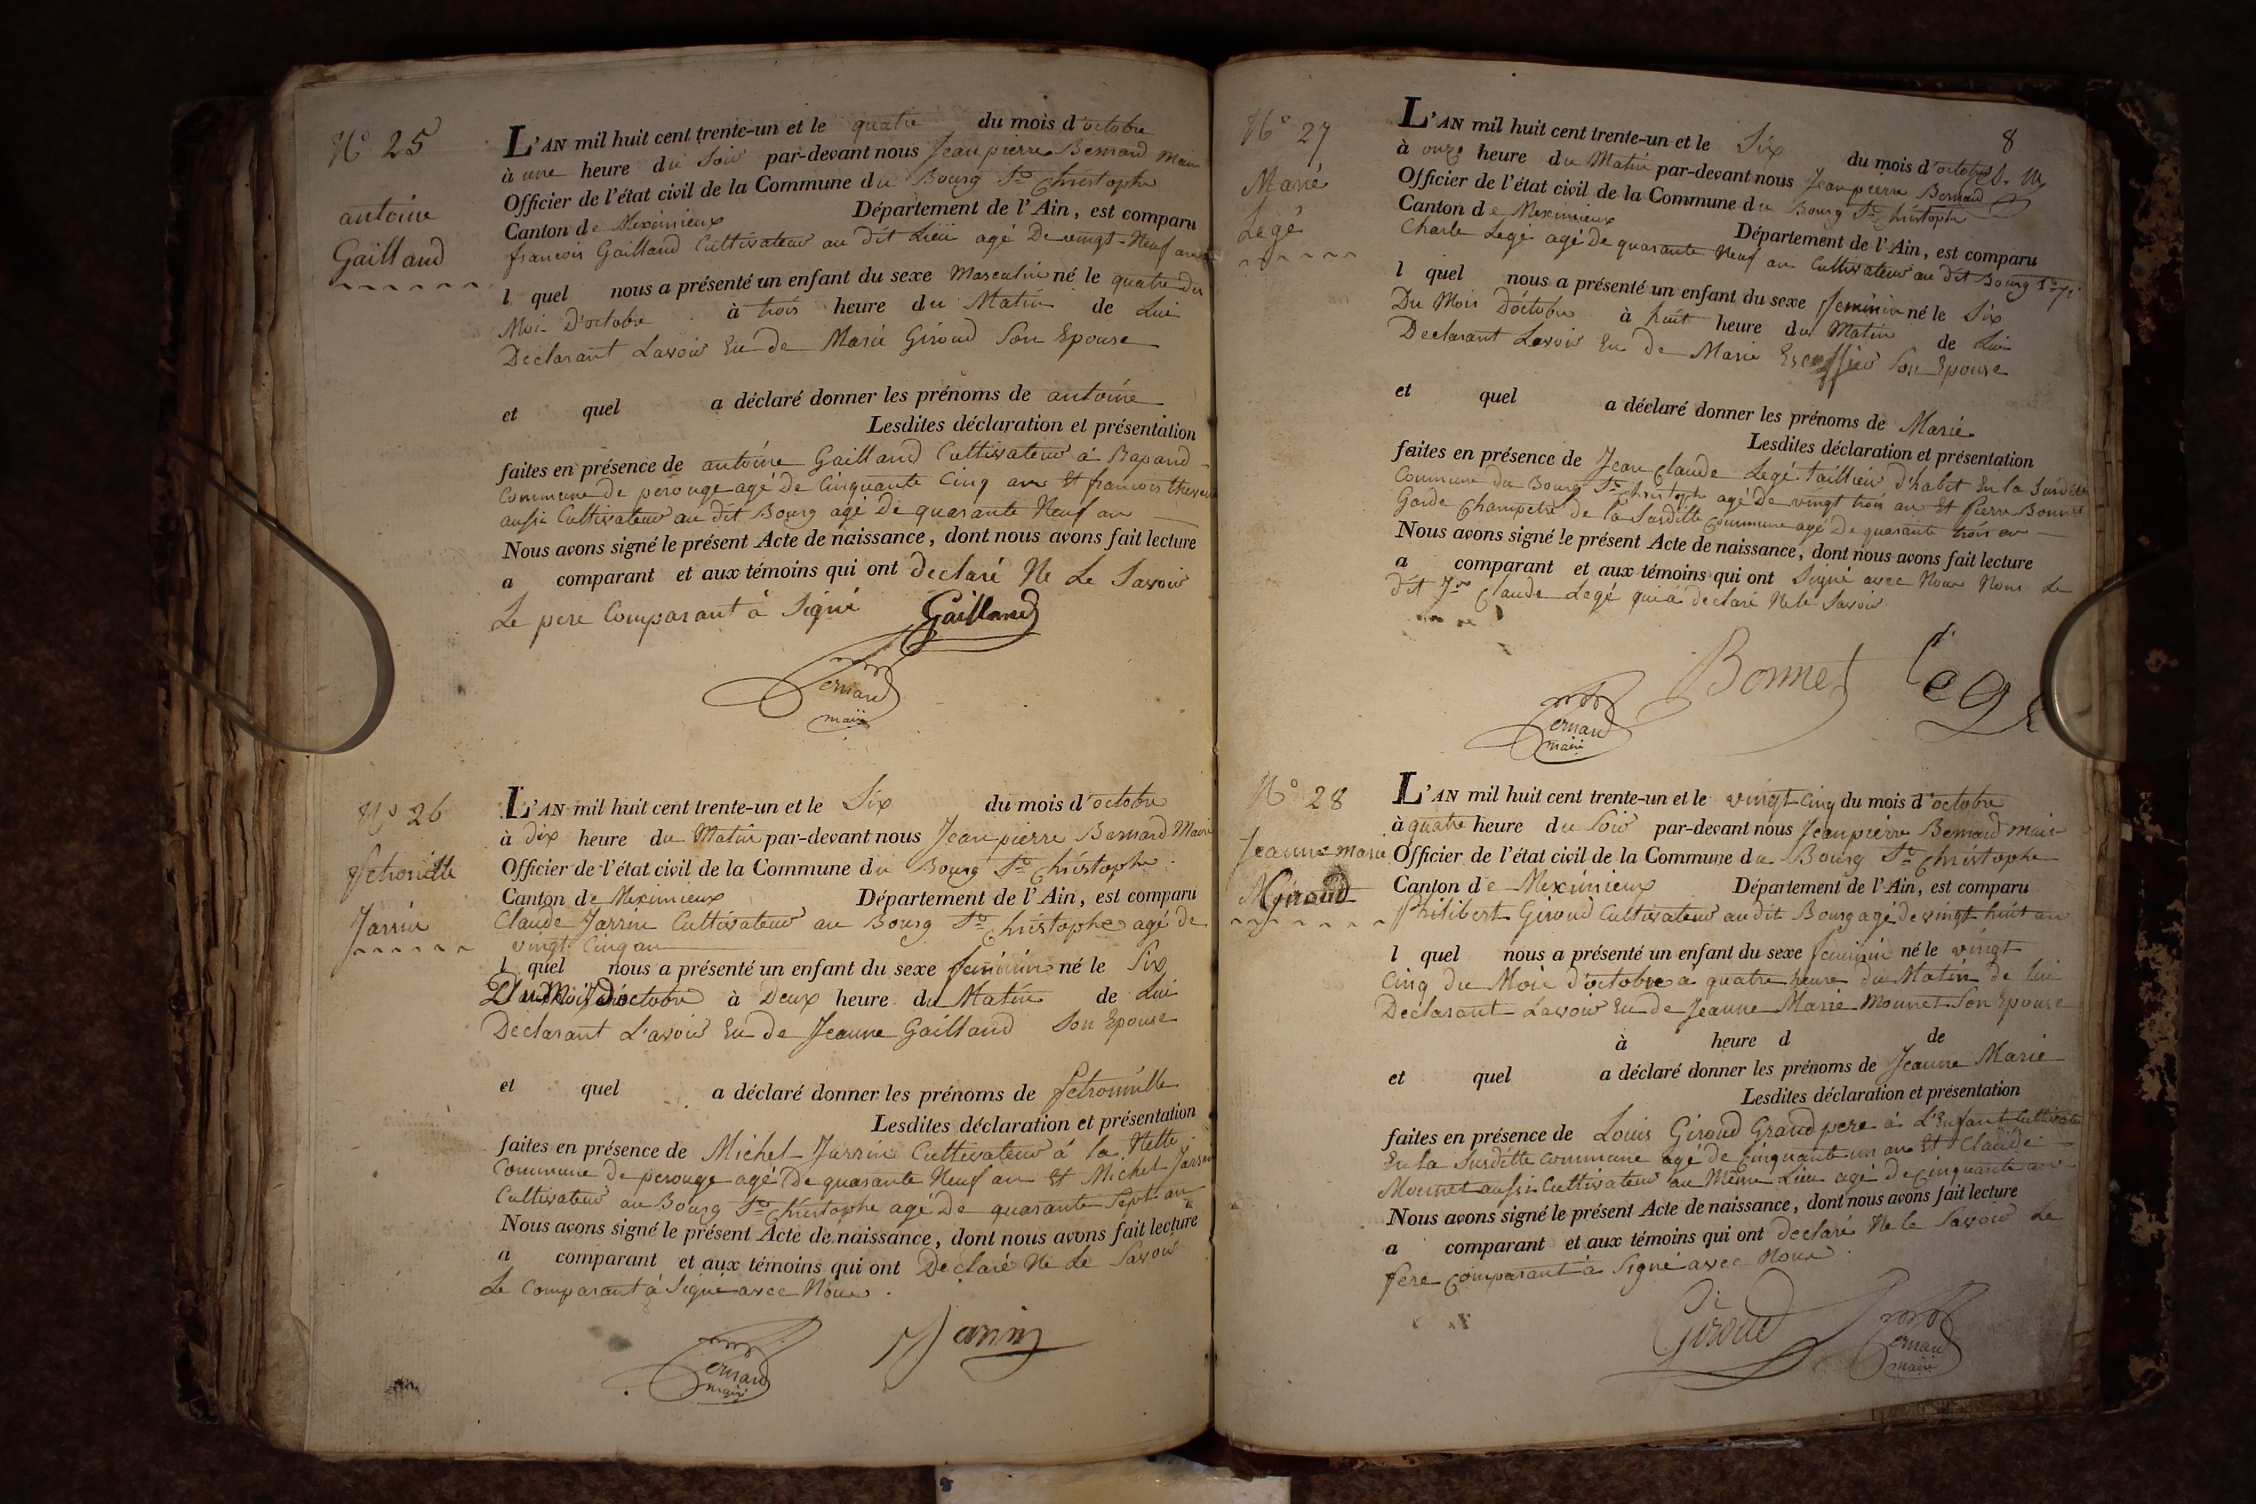 N° 25
antoine
Gaïlland
L'AN mil huit cent trente-un et le quatre du mois d'octobre
à une heure du Soir par-devant nous Jean pierre Bernard Maire
Officier de l'état civil de la Commune du Bourg St Christophe
Canton de Meximieux Département de l'Ain, est comparu
francois Gailland Cultivateur au dit Lieu agé De vingt-Neuf ans
l quel nous a présenté un enfant du sexe Masculin né le quatre du
Moi D'octobre à trois heure du Matin de Lui
Déclarant Lavoir Eu de Marie Giroud Son Epouse
et quel a déclaré donner les prénoms de antoine
Lesdites déclaration et présentation
faites en présence de antoine Gailland Cultivateur à Rapand
Commune de perouge agé De Cinquante Cinq an Et francois
aussi Cultivateur au dit Bourg agé De quarante Neuf an
Nous avons signé le présent Acte de naissance, dont nous avons fait lecture
a comparant et aux témoins qui ont declaré Ne Le Savoir
Le pere Comparant à Signé Gailland
Bernard
maire
N° 26
Petronille
Jarrin
L'AN mil huit cent trente-un et le Six du mois d'octobre
à dix heure du Matin par-devant nous Jean pierre Bernard Maire
Officier de l'état civil de la Commune du Bourg St Christophe
Canton de Meximieux Département de l'Ain, est comparu
Claude Jarrin Cultivateur au Bourg St Christophe agé de
vingt Cinq an
l quel nous a présenté un enfant du sexe feminin né le Six
Du Moi d'octobre à Deux heure du Matin de Lui
Déclarant L'avoir Eu de Jeanne Gailland Son Epouse
et quel a déclaré donner les prénoms de Petronille
Lesdites déclaration et présentation
faites en présence de Michel Jarrin Cultivateur à la
Commune de perouge agé De quarante Neuf an Et Michel Jarrin
Cultivateur au Bourg St Christophe agé De quarante Sept an
Nous avons signé le présent Acte de naissance, dont nous avons fait lecture
a comparant et aux témoins qui ont Declaré Ne Le Savoir
Le Comparant à Signé avec Nous
Bernard
maire
Jarrin
8
N° 27
Marié
Legé
L'AN mil huit cent trente-un et le Six du mois d'octobre
à onze heure du Matin par-devant nous Jean pierre Bernard
Officier de l'état civil de la Commune du Bourg St Christophe
Canton de Meximieux Département de l'Ain, est comparu
Charle Legé agé De quarante Neuf an Cultivateur au dit Bourg
l quel nous a présenté un enfant du sexe feminin né le Six
Du Mois D'octobre à huit heure du Matin de Lui
Declarant Lavoir Eu de Marie Escoffier Son Epouse
et quel a déclaré donner les prénoms de Marie
Lesdites déclaration et présentation
faites en présence de Jean Claude Legé taillieur d'habit En la Susditte
Commune du Bourg St Christophe agé De vingt trois an Et Pierre Bonnet
Garde Champetre de la Susditte Commune agé De quarante trois an
Nous avons signé le présent Acte de naissance, dont nous avons fait lecture
a comparant et aux témoins qui ont Signé avec Nous Nons Le
dit Jn Claude Legé qui a declaré Ne le Savoir
Bernard
maire
Bonnet
Legé
N° 28
Jeanne marie
Giroud
L'AN mil huit cent trente-un et le vingt Cinq du mois d'octobre
à quatre heure du Soir par-devant nous Jean pierre Bernard maire
Officier de l'état civil de la Commune du Bourg St Christophe
Canton de Meximieux Département de l'Ain, est comparu
Philibert Giroud Cultivateur au dit Bourg agé de vingt huit an
l quel nous a présenté un enfant du sexe feminin né le vingt
Cinq du Mois d'octobre à quatre heure du Matin de lui
Declarant Lavoir Eu de Jeanne Marie Mounet Son Epouse
à heure d de
et quel a déclaré donner les prénoms de Jeanne Marie
Lesdites déclaration et présentation
faites en présence de Louis Giroud Grand pere à L'Enfant Cultivateur
En la Susditte Commune agé de Cinquante un an Et Claude
Mounet aussi Cultivateur au Même Lieu agé De cinquante an
Nous avons signé le présent Acte de naissance, dont nous avons fait lecture
a comparant et aux témoins qui ont declaré Ne le Savoir Le
Pere Comparant à Signé avec Nous
Giroud
Bernard
maire